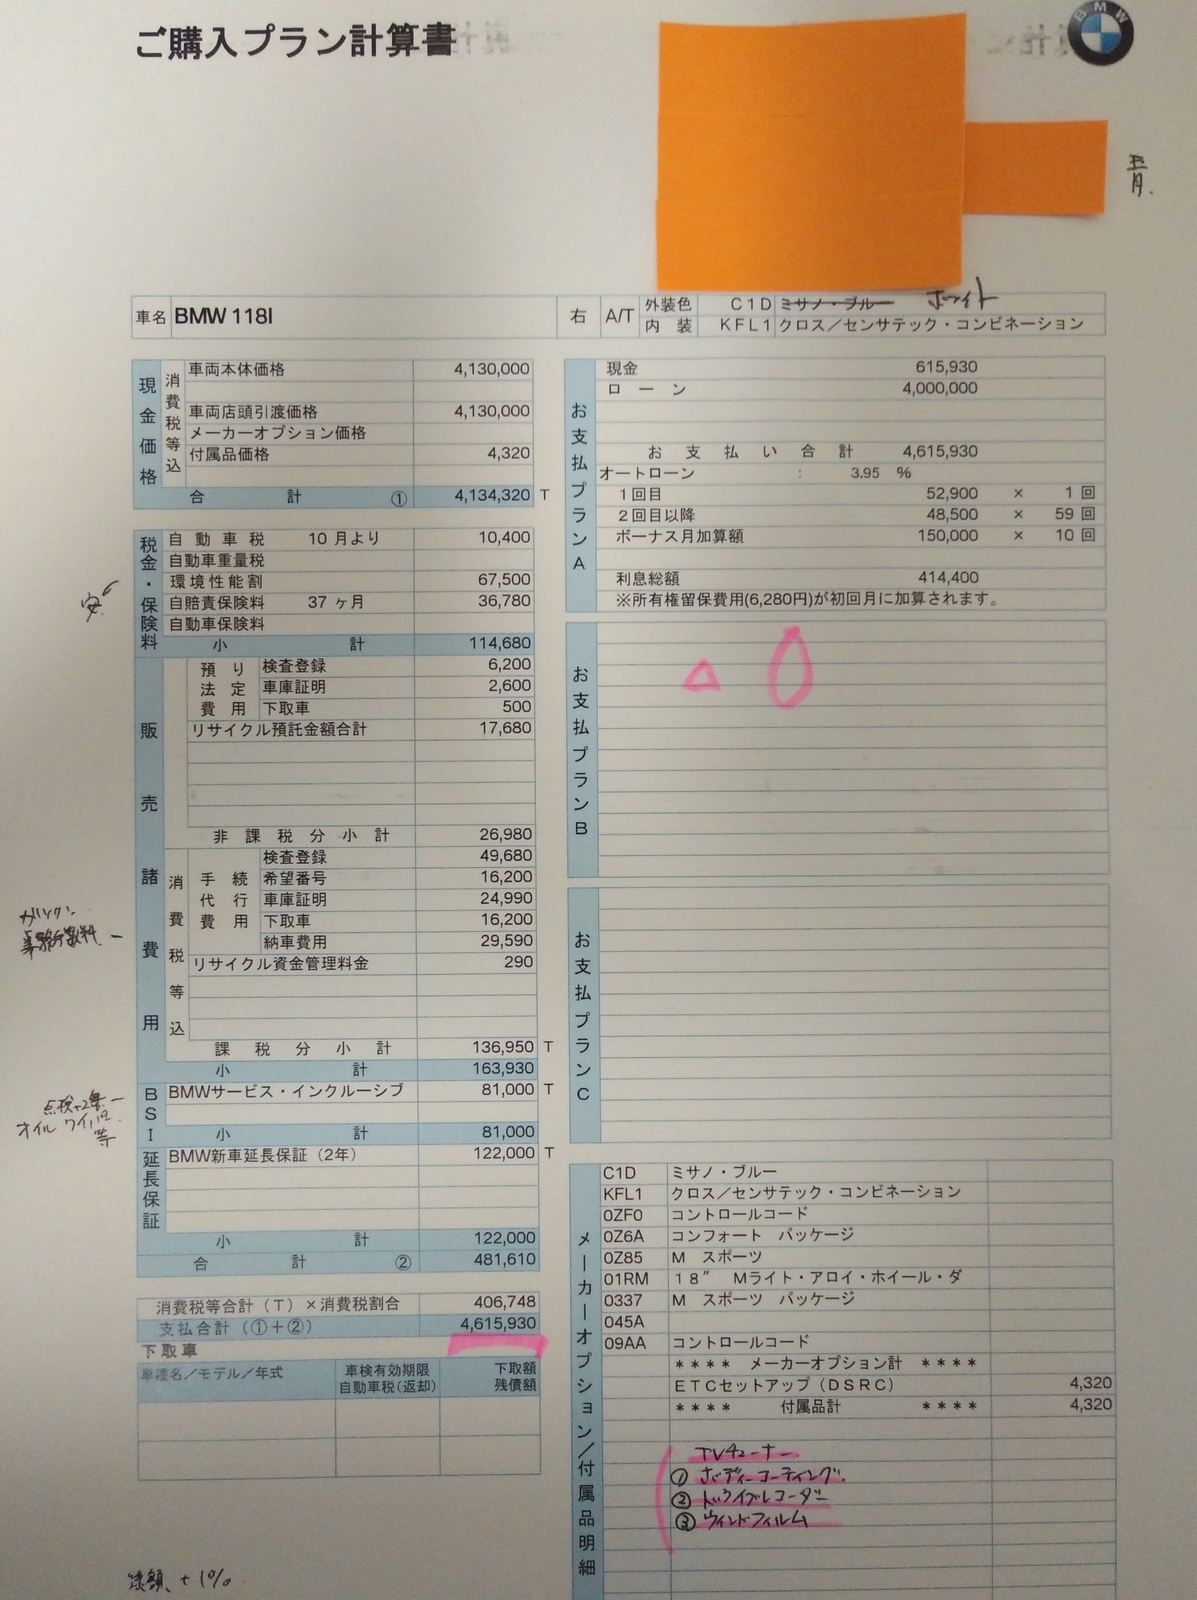 ご購入プラン計算書
BMW
車名 BMW 118I 右 A/T 外装色 C1D ミサノ・ブルー ホワイト
内装 KFL1 クロス／センサテック・コンビネーション
現金価格
消費税等込
車両本体価格 4,130,000
車両店頭引渡価格 4,130,000
メーカーオプション価格
付属品価格 4,320
合計 ① 4,134,320 T
税金・保険料
自動車税 10月より 10,400
自動車重量税
環境性能割 67,500
自賠責保険料 37ヶ月 36,780
自動車保険料
小計 114,680
販売諸費用
預り法定費用
検査登録 6,200
車庫証明 2,600
下取車 500
リサイクル預託金額合計 17,680
非課税分小計 26,980
消費税等込
手続代行費用
検査登録 49,680
希望番号 16,200
車庫証明 24,990
下取車 16,200
納車費用 29,590
リサイクル資金管理料金 290
課税分小計 136,950 T
小計 163,930
BSI
BMWサービス・インクルーシブ 81,000 T
小計 81,000
点検+2年
オイル ワイパー
等
延長保証
BMW新車延長保証（2年） 122,000 T
小計 122,000
合計 ② 481,610
消費税等合計（T）×消費税割合 406,748
支払合計（①＋②） 4,615,930
下取車
車種名／モデル／年式 車検有効期限 下取額
自動車税(返却) 残債額
+1%
お支払プランA
現金 615,930
ローン 4,000,000
お支払い合計 4,615,930
オートローン : 3.95 %
1回目 52,900 × 1回
2回目以降 48,500 × 59回
ボーナス月加算額 150,000 × 10回
利息総額 414,400
※所有権留保費用(6,280円)が初回月に加算されます。
お支払プランB
お支払プランC
メーカーオプション／付属品明細
C1D ミサノ・ブルー
KFL1 クロス／センサテック・コンビネーション
0ZF0 コントロールコード
0Z6A コンフォート パッケージ
0Z85 M スポーツ
01RM 18″ Mライト・アロイ・ホイール・ダ
0337 M スポーツ パッケージ
045A
09AA コントロールコード
＊＊＊＊ メーカーオプション計 ＊＊＊＊
ETCセットアップ（DSRC） 4,320
＊＊＊＊ 付属品計 ＊＊＊＊ 4,320
TVチューナー
① ボディーコーティング
② ドライブレコーダー
③ ウィンドフィルム